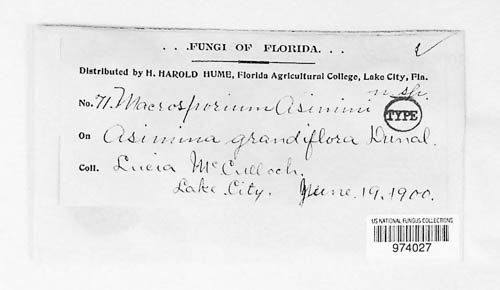 . . . FUNGI OF FLORIDA. . .
Distributed by H. HAROLD HUME, Florida Agricultural College, Lake City, Fla.
n. sp.
No. 71. Macrosporium Asimini
TYPE
On Asimina grandiflora Dunal.
Coll. Lucia McCulloch.
Lake City. June. 19. 1900.
US NATIONAL FUNGUS COLLECTIONS
974027